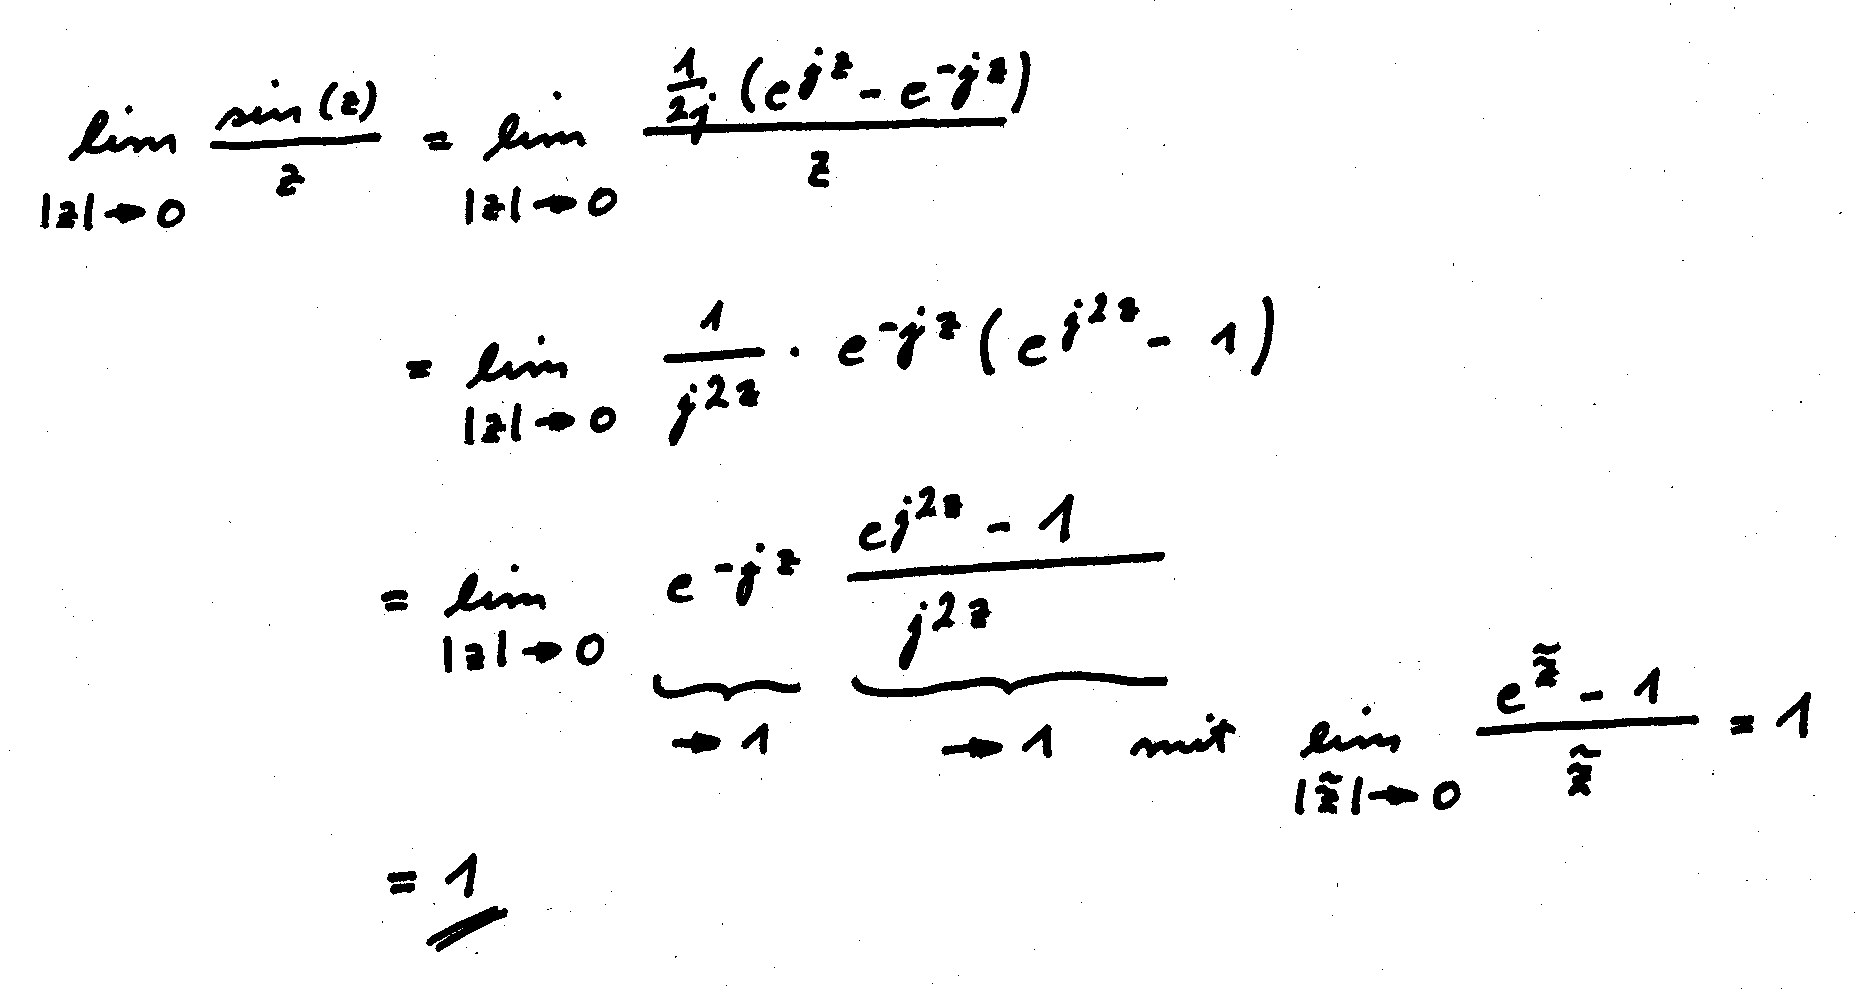 $\lim_{|z| \to 0} \frac{\sin(z)}{z} = \lim_{|z| \to 0} \frac{\frac{1}{2j}(e^{jz} - e^{-jz})}{z}$
$= \lim_{|z| \to 0} \frac{1}{j2z} \cdot e^{-jz}(e^{j2z} - 1)$
$= \lim_{|z| \to 0} \underbrace{e^{-jz}}_{\to 1} \underbrace{\frac{e^{j2z} - 1}{j2z}}_{\to 1}$ mit $\lim_{|\tilde{z}| \to 0} \frac{e^{\tilde{z}} - 1}{\tilde{z}} = 1$
$= 1$